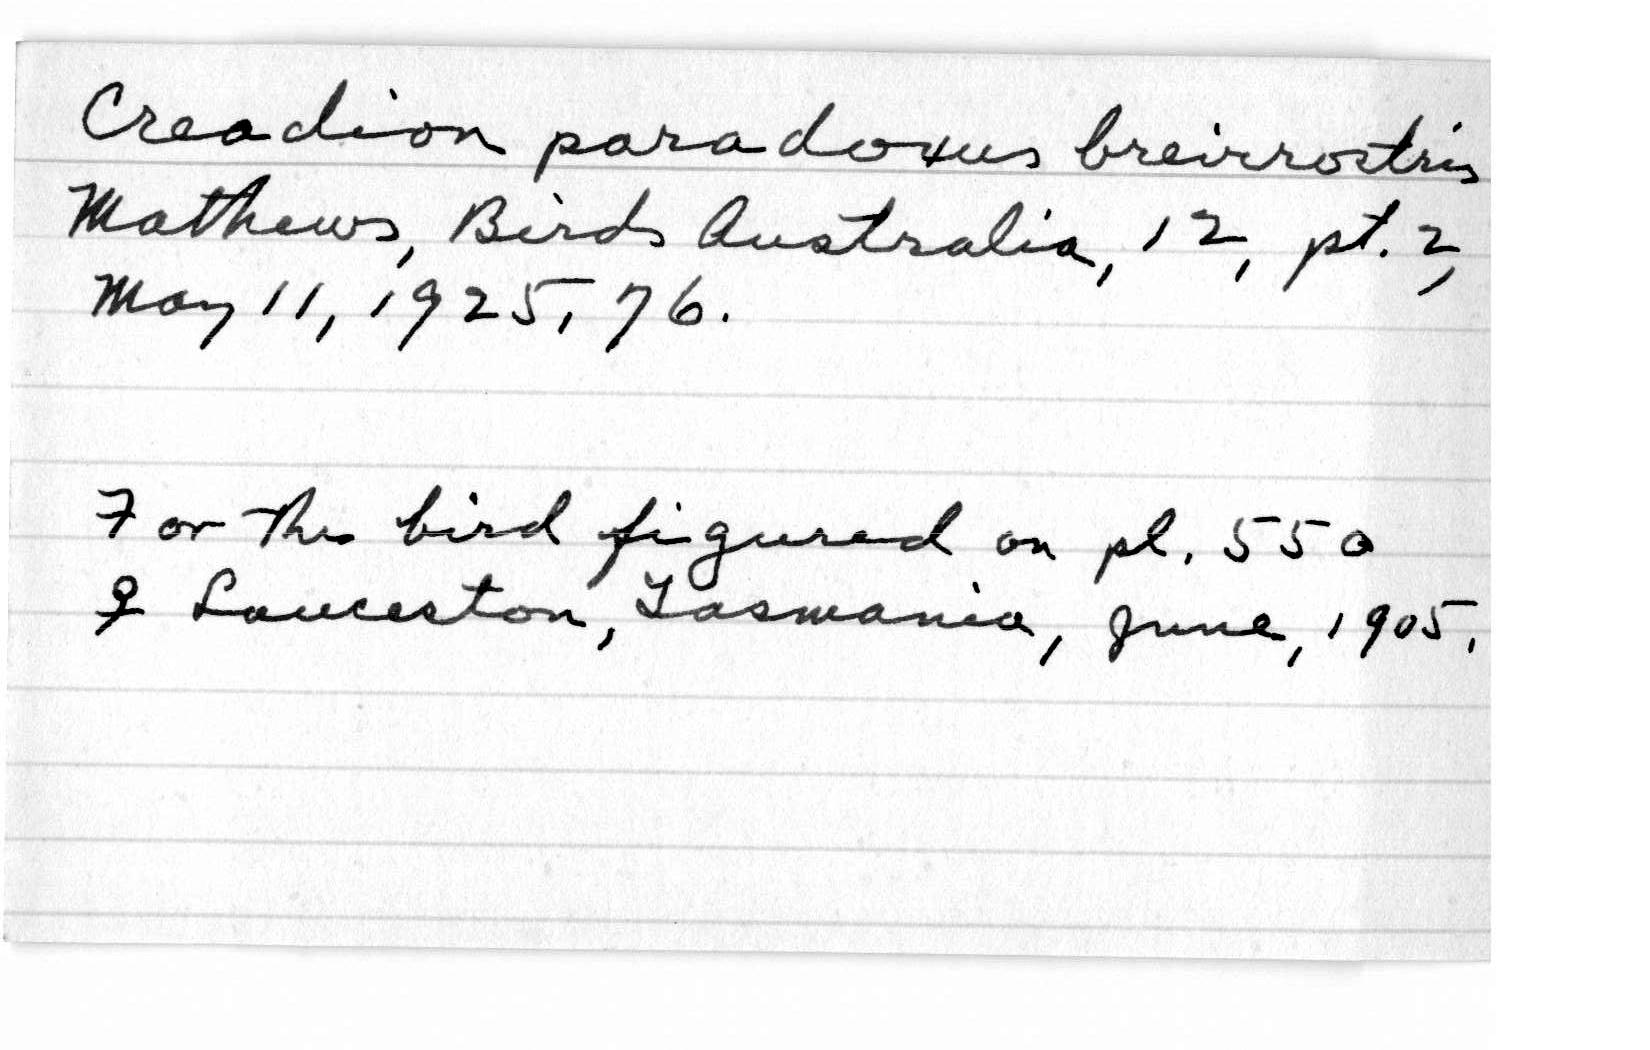 Creadion paradoxus breirrostris
Mathews, Birds Australia, 12, pt. 2,
May 11, 1925, 76.
For the bird figured on pl. 550
♀ Lauceston, Tasmania, June, 1905.